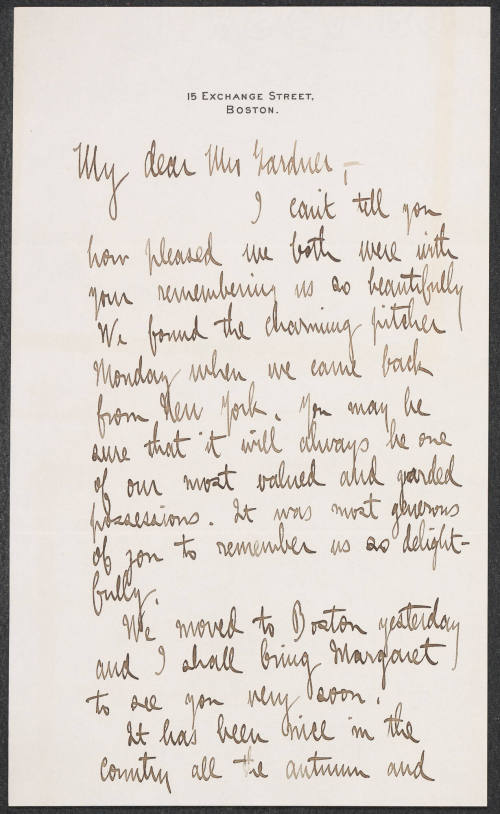 15 EXCHANGE STREET,
BOSTON.
My dear Mrs Gardner,—
I can't tell you
how pleased we both were with
your remembering us so beautifully
We found the charming pitcher
Monday when we came back
from New York. You may be
sure that it will always be one
of our most valued and guarded
possessions. It was most generous
of you to remember us so delight-
fully.
We moved to Boston yesterday
and I shall bring Margaret
to see you very soon.
It has been nice in the
country all the autumn and